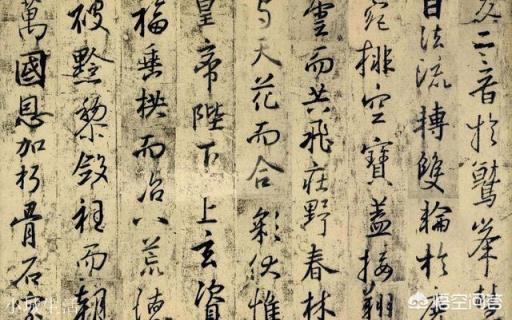 交二音於鷲峯慧
日法流轉雙輪於鹿
菀排空寶蓋接翔
雲而共飛莊野春林
與天花而合彩伏惟
皇帝陛下上玄資
福垂拱而治八荒德
被黔黎斂衽而朝
萬國恩加朽骨石
悟空问答